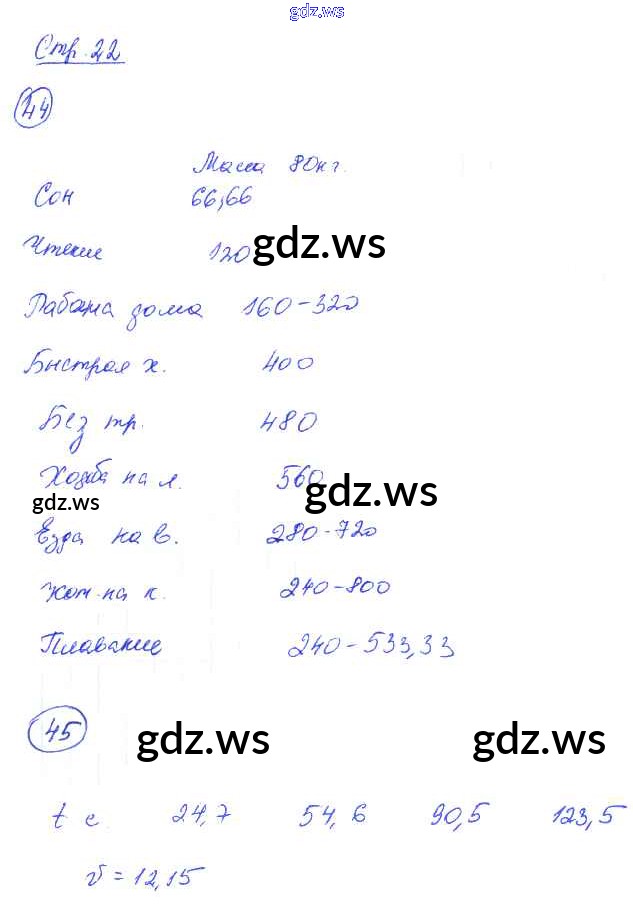 gdz.ws
Стр. 22
44
Масса 80кг.
Сон 66,66
Чтение 120 gdz.ws
Работа дома 160-320
Быстрая х. 400
Без тр. 480
Ходьба на л. 560 gdz.ws
gdz.ws
Езда на в. 280-720
Кат. на к. 240-800
Плавание 240-533,33
45 gdz.ws gdz.ws
t с. 24,7 54,6 90,5 123,5
v = 12,15